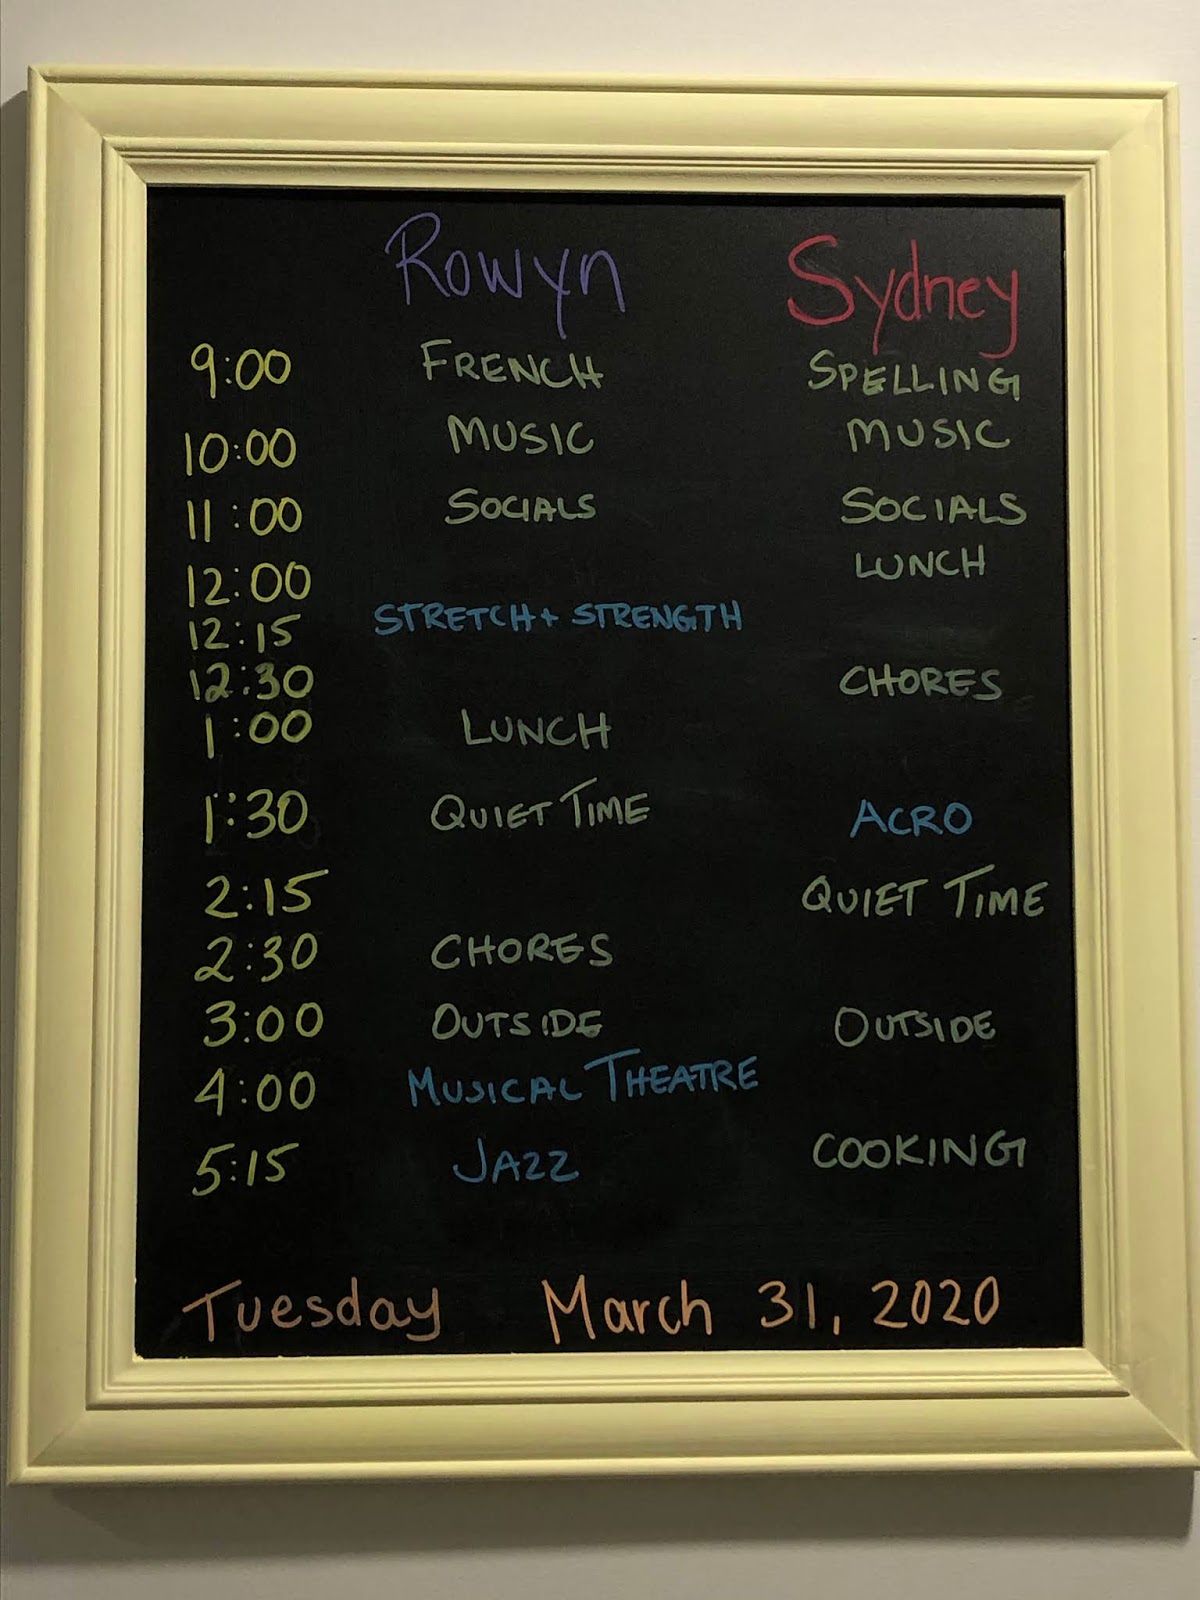 Rowyn Sydney
9:00 FRENCH SPELLING
10:00 MUSIC MUSIC
11:00 SOCIALS SOCIALS
12:00 LUNCH
12:15 STRETCH + STRENGTH
12:30 CHORES
1:00 LUNCH
1:30 QUIET TIME ACRO
2:15 QUIET TIME
2:30 CHORES
3:00 OUTSIDE OUTSIDE
4:00 MUSICAL THEATRE
5:15 JAZZ COOKING
Tuesday March 31, 2020